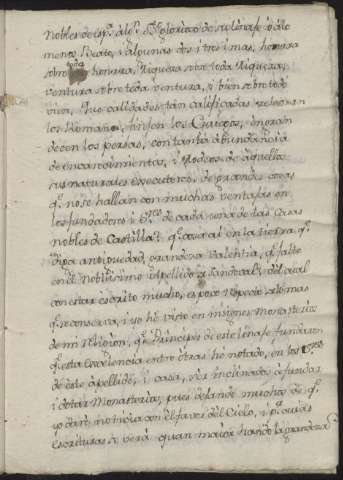 nobles de
menos algunas dos i tres mas, honrra
sobre toda honrra, Riqueza sobre toda Riqueza,
ventura sobre toda ventura, i bien sobre todo
que calidades tan calificadas zelebran
los Romanos, finjen los Griegos, engran
decen los persas, con tanta abundancia
de encarecimientos, i modeos de aquella
sus naturales executores de grandes cosas
qe. no se hallan con muchas ventajas en
los fundadores i de cada una de las Casas
nobles de Castilla? qe. en la tierra qe.
antiguedad, o grandeza, valentia, qe. falte
en el nobilissimo Apellido de Sandoval? del qual
con estar escrito mucho, es poco Respecto a lo mas
qe. se conserva, i yo he visto en insignes Monasterios
de mi Religion, qe. Principes de este linaje fundaron
qe. esta excelencia entre otras he notado, en los
de este apellido, i casa, ser inclinados a fundar
i dotar Monasterios, pues de muchos de qe.
yo daré noticia con el favor del Cielo, i pr. sus
escrituras se verá quan maior siendo la grandeza